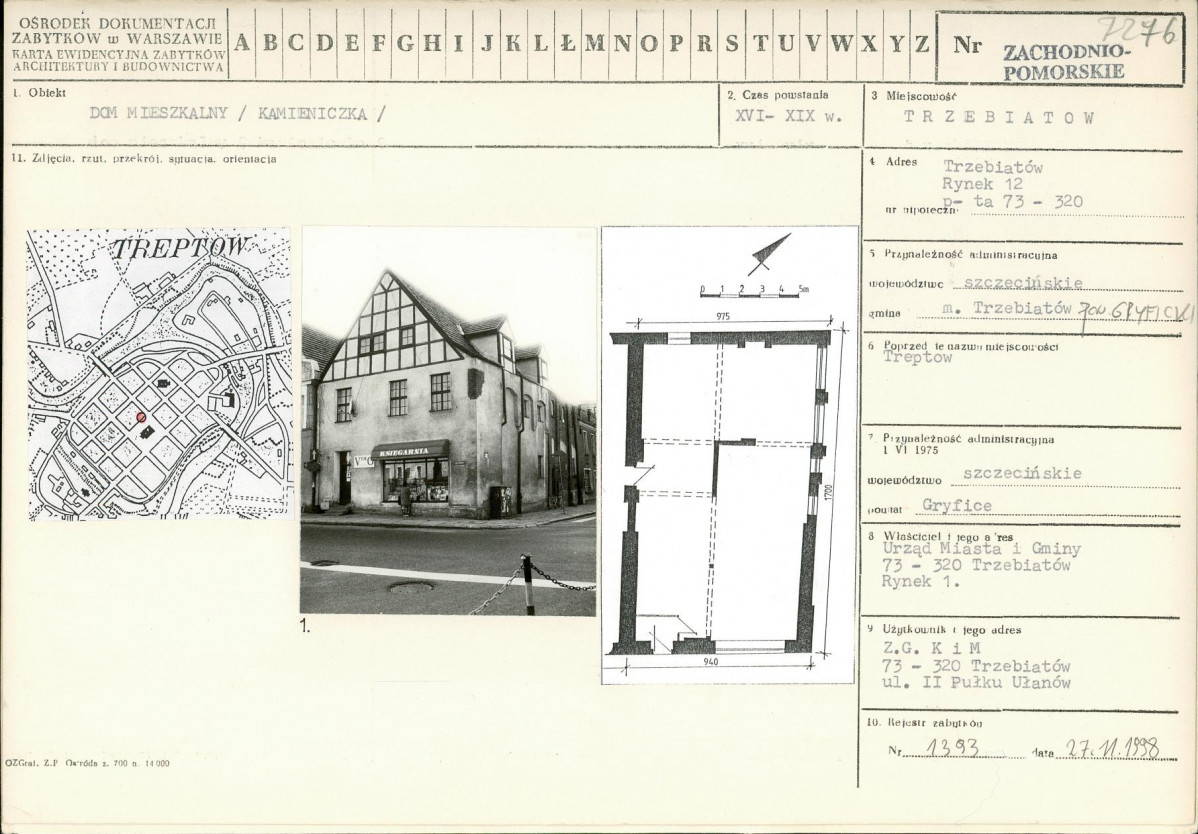 OŚRODEK DOKUMENTACJI
ZABYTKÓW w WARSZAWIE
KARTA EWIDENCYJNA ZABYTKÓW
ARCHITEKTURY I BUDOWNICTWA
A B C D E F G H I J K L Ł M N O P R S T U V W X Y Z
Nr
7276
ZACHODNIO-
POMORSKIE
1. Obiekt
DOM MIESZKALNY / KAMIENICZKA /
2. Czas powstania
XVI- XIX w.
3 Miejscowość
TRZEBIATOW
11. Zdjęcia, rzut, przekrój, sytuacja, orientacja
TREPTOW
KSIĘGARNIA
1.
0 1 2 3 4 5m
975
1700
940
4 Adres
Trzebiatów
Rynek 12
p- ta 73 - 320
nr hipoteczn.
5 Przynależność administracyjna
województwo szczecińskie
gmina m. Trzebiatów pow GRYFICKI
6 Poprzednie nazwy miejscowości
Treptow
7. Przynależność administracyjna
1 VI 1975
województwo szczecińskie
powiat Gryfice
8 Właściciel i jego adres
Urząd Miasta i Gminy
73 - 320 Trzebiatów
Rynek 1.
9 Użytkownik i jego adres
Z.G. K i M
73 - 320 Trzebiatów
ul. II Pułku Ułanów
10. Rejestr zabytków
Nr 1393 data 27.11.1998
OZGraf. Z.P Ostróda z. 700 n. 14 000